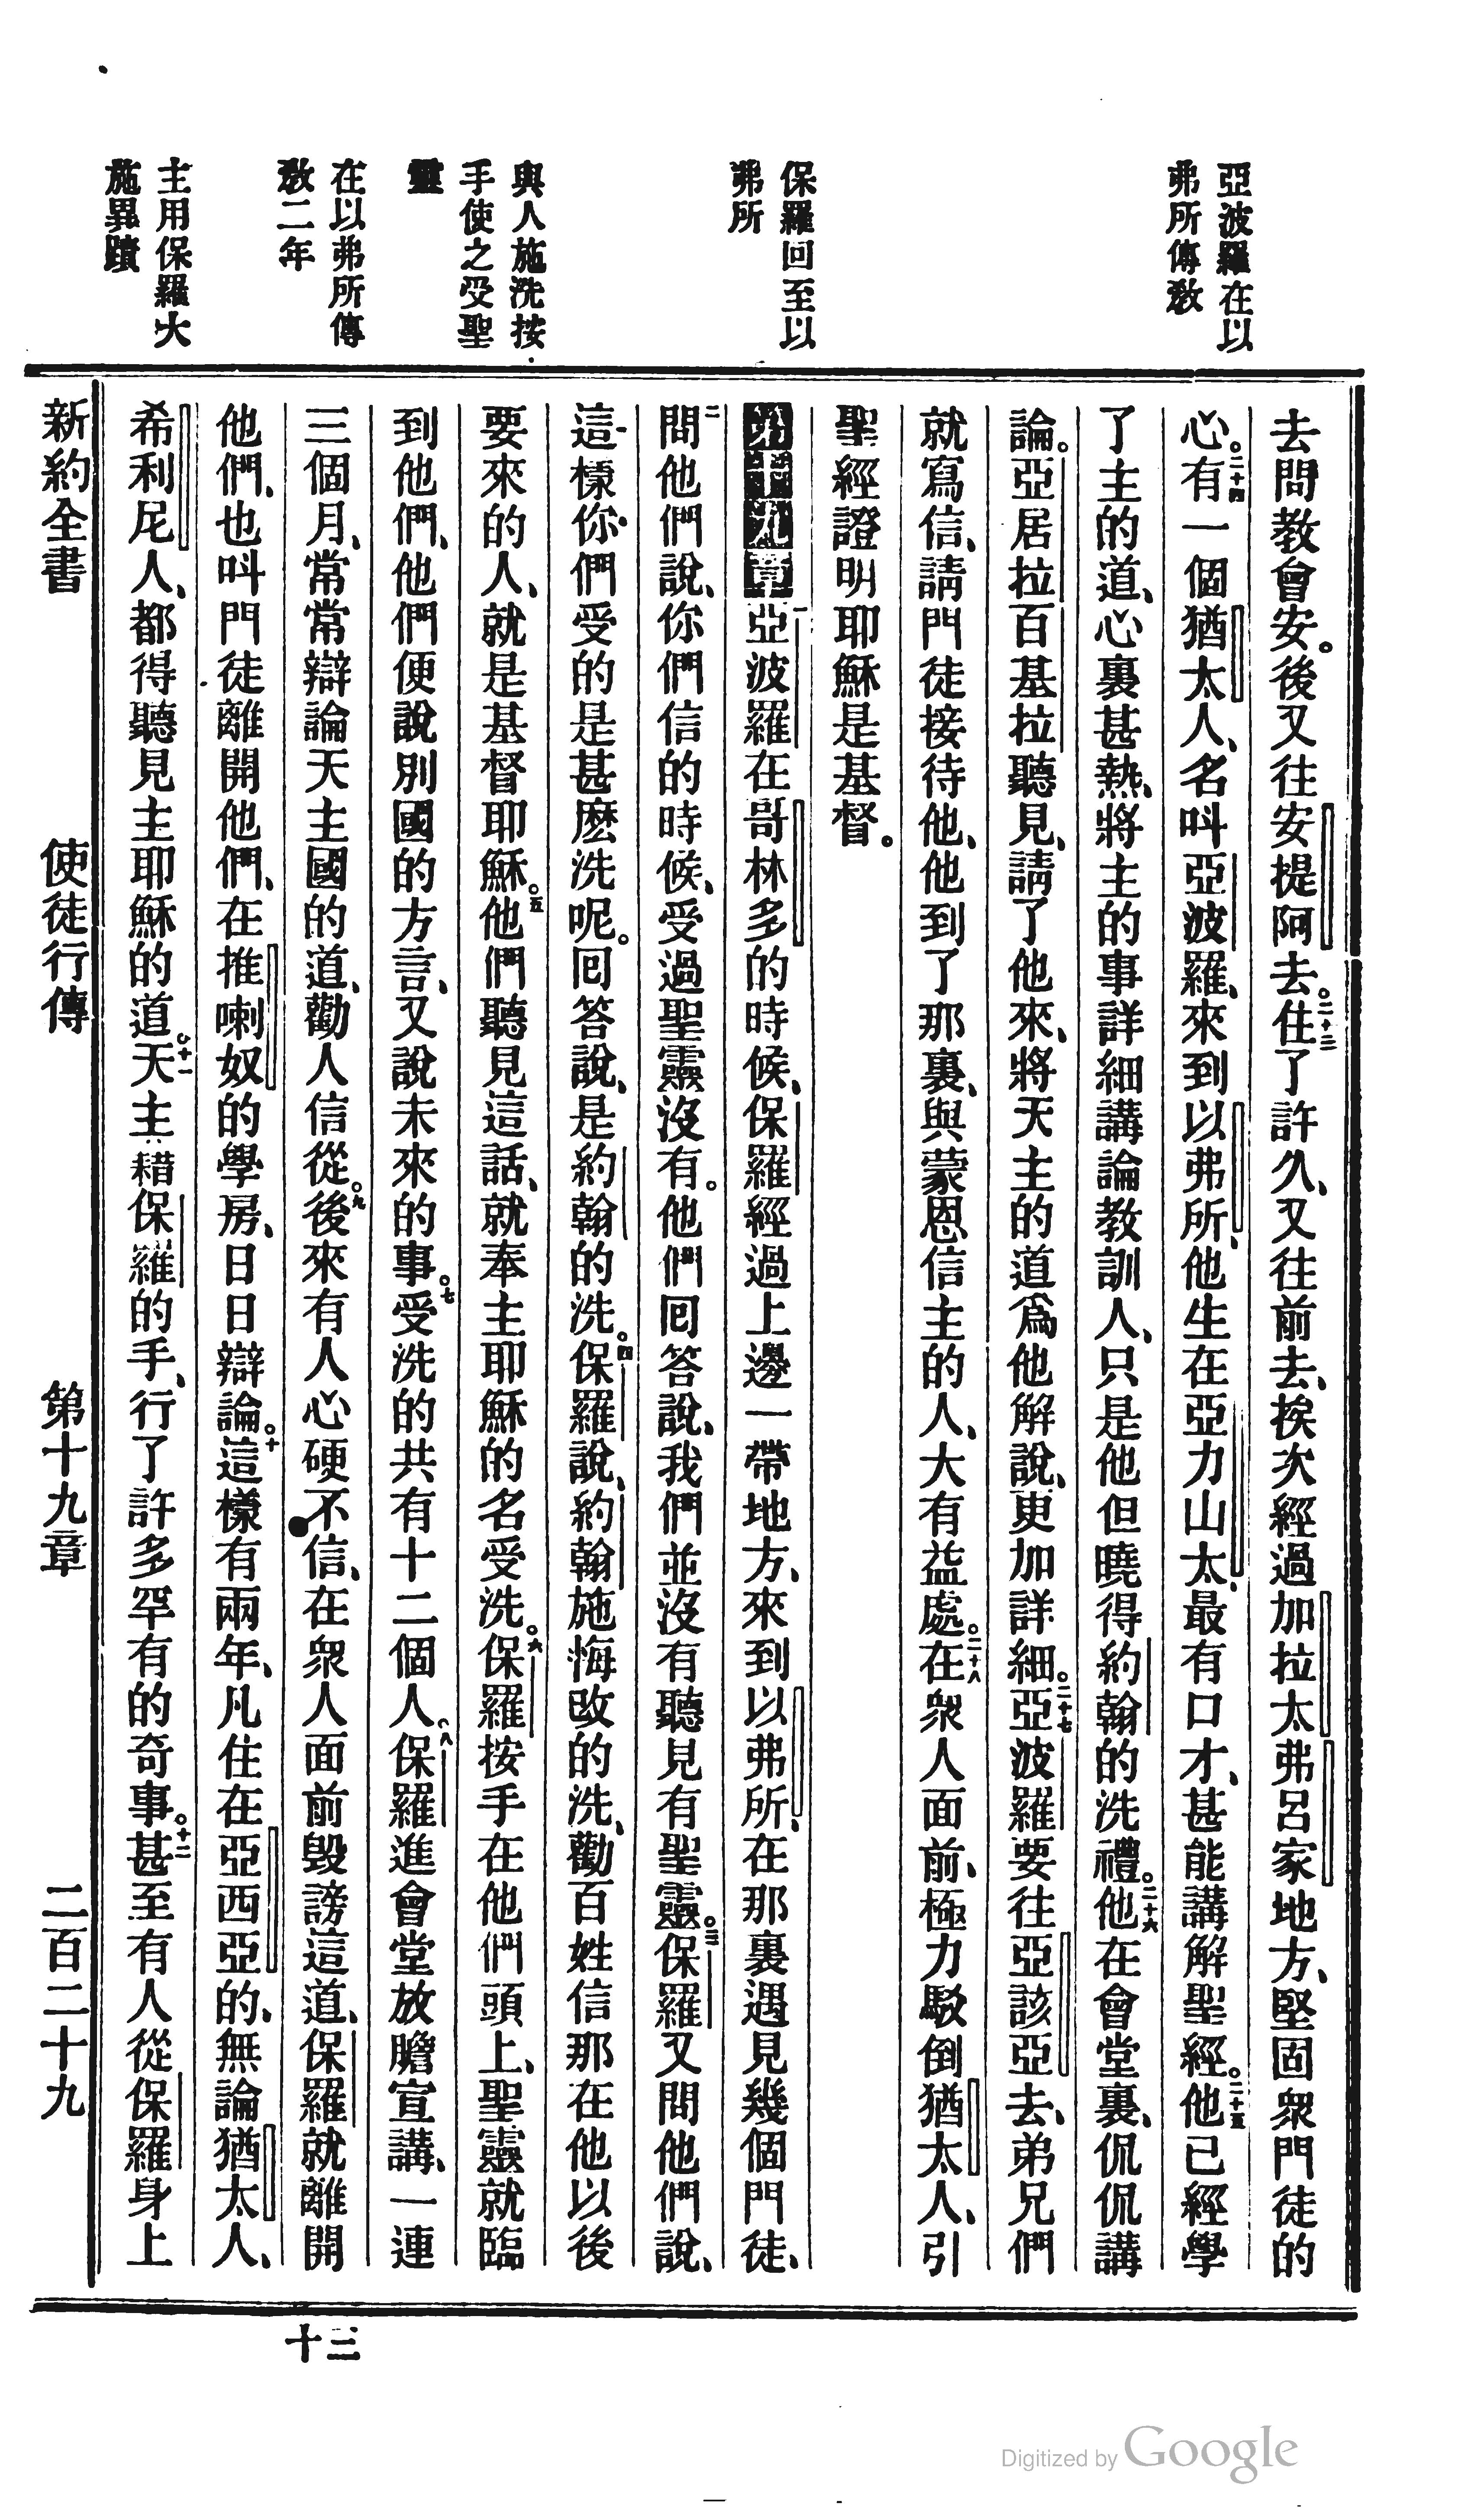 亞波羅在以
弗所傳敎
保羅回至以
弗所
與人施洗按
手使之受聖
靈
在以弗所傳
敎二年
主用保羅大
施異蹟
去問教會安。後又往安提阿去。二十三住了許久、又往前去、挨次經過加拉太弗呂家地方、堅固衆門徒的
心。二十四有一個猶太人、名呌亞波羅、來到以弗所、他生在亞力山太、最有口才、甚能講解聖經。二十五他已經學
了主的道、心裏甚熱、將主的事詳細講論教訓人、只是他但曉得約翰的洗禮。二十六他在會堂裏、侃侃講
論。亞居拉百基拉聽見、請了他來、將天主的道爲他解說、更加詳細。二十七亞波羅要往亞該亞去、弟兄們
就寫信、請門徒接待他、他到了那裏、與蒙恩信主的人、大有益處。二十八在衆人面前、極力駁倒猶太人、引
聖經證明耶穌是基督。
第十九章 一亞波羅在哥林多的時候、保羅經過上邊一帶地方、來到以弗所、在那裏遇見幾個門徒、
二問他們說、你們信的時候、受過聖靈沒有。他們回答說、我們並沒有聽見有聖靈。三保羅又問他們說、
這樣你們受的是甚麽洗呢。回答說、是約翰的洗。四保羅說、約翰施悔改的洗、勸百姓信那在他以後
要來的人、就是基督耶穌。五他們聽見這話、就奉主耶穌的名受洗。六保羅按手在他們頭上、聖靈就臨
到他們、他們便說別國的方言、又說未來的事。七受洗的共有十二個人。八保羅進會堂放膽宣講、一連
三個月、常常辯論天主國的道、勸人信從。九後來有人心硬不信、在衆人面前毀謗這道、保羅就離開
他們、也呌門徒離開他們、在推喇奴的學房、日日辯論。十這樣有兩年、凡住在亞西亞的、無論猶太人、
希利尼人、都得聽見主耶穌的道。十一天主藉保羅的手、行了許多罕有的奇事。十二甚至有人從保羅身上
新約全書 使徒行傳 第十九章 二百二十九
三十
Digitized by Google